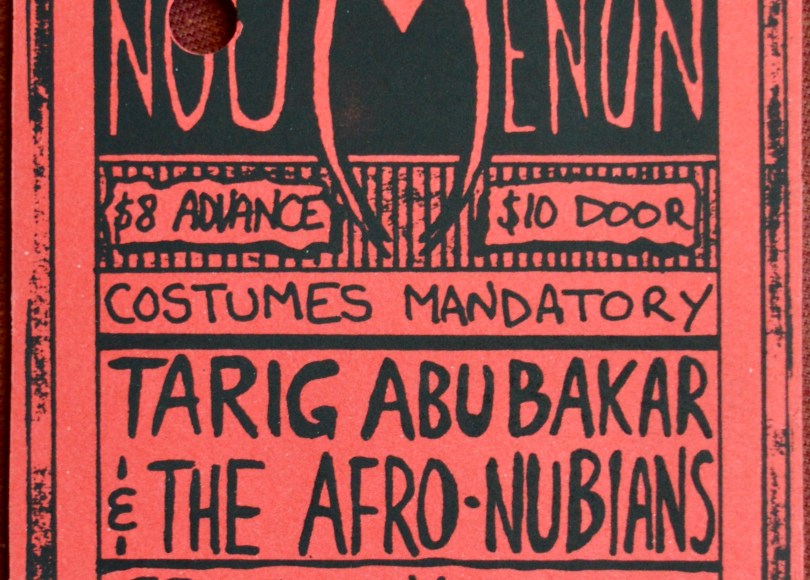 NOUMENON
$8 ADVANCE $10 DOOR
COSTUMES MANDATORY
TARIG ABUBAKAR
& THE AFRO-NUBIANS